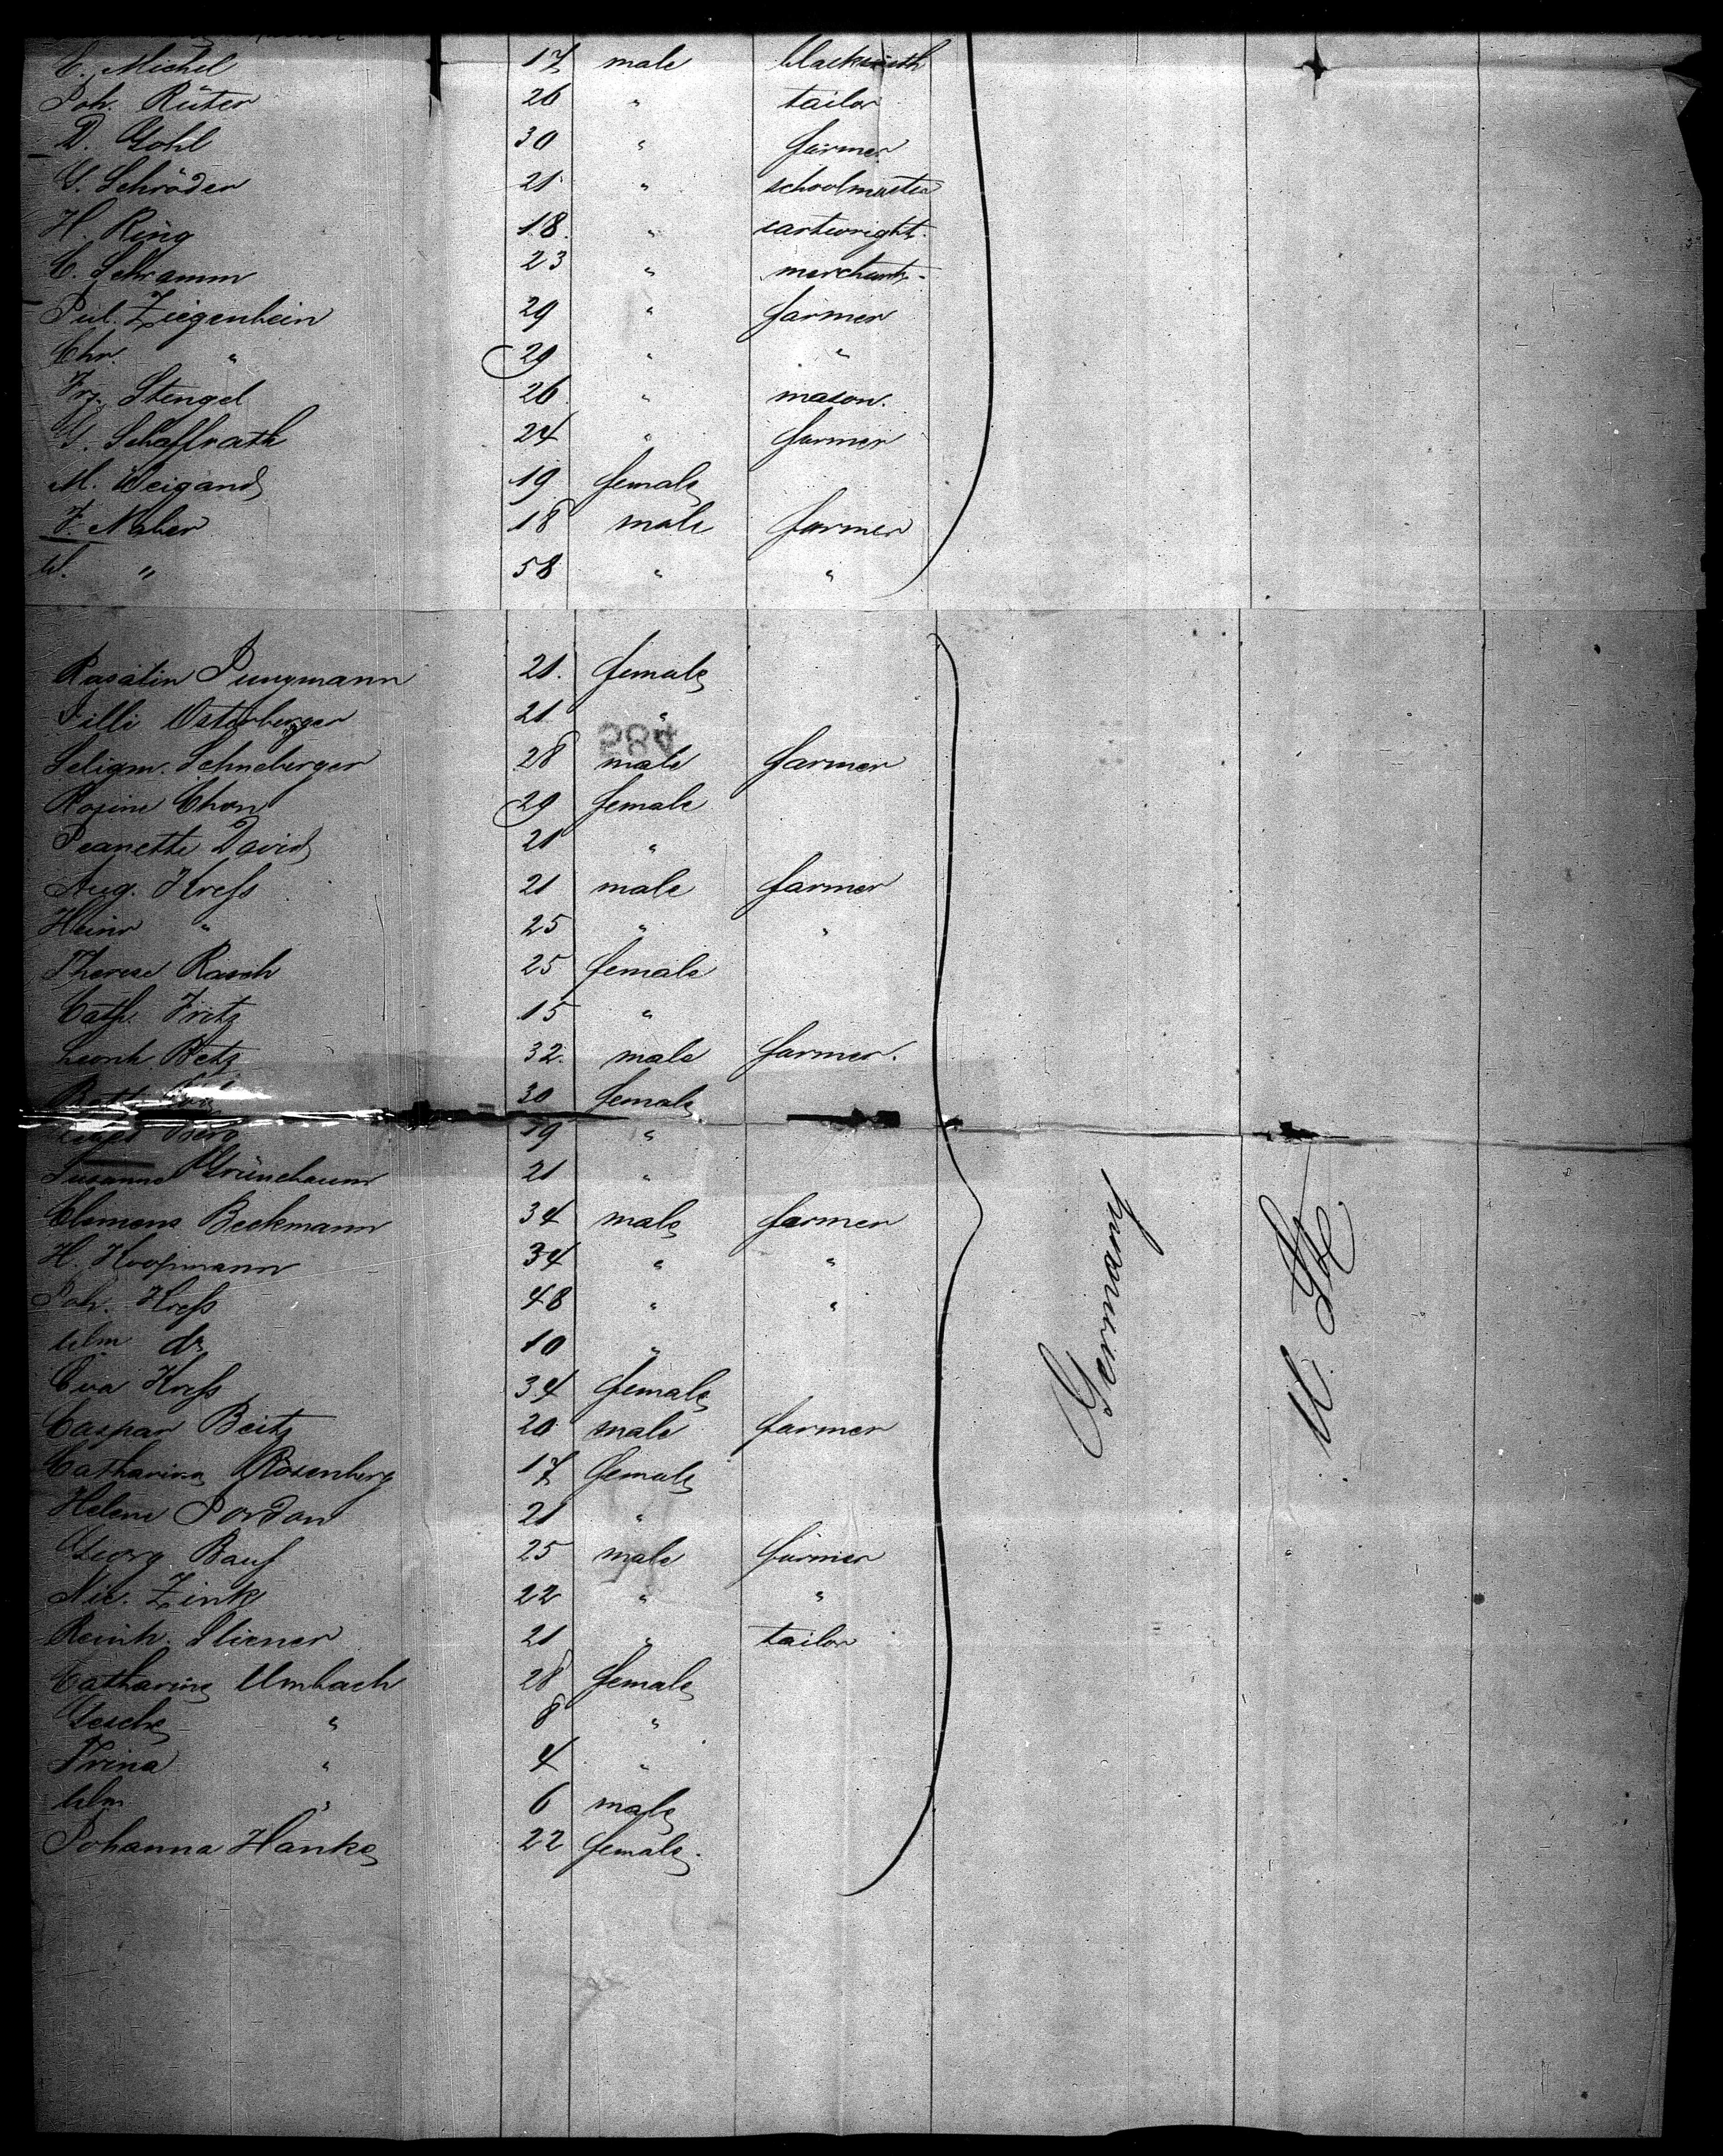 C. Michel 17 male blacksmith
Joh. Rüter 26 " tailor
D. Gohl 30 " farmer
G. Schröder 21 " schoolmaster
H. Ring 18 " cartwright
C. Schramm 23 " merchant
Jul. Ziegenbein 29 " farmer
Chr. " 29 " "
Frz. Stengel 26 " mason.
G. Schaffrath 24 " farmer
M. Weigand 19 female
F. Naber 18 male farmer
W. " 58 " "
Rosalin Jungmann 21. female
Tilli Osterberger 21 "
584
Seligm. Schneberger 28 male farmer
Rosine Chon 29 female
Jeanette David 21 "
Aug. Kreſs 21 male farmer
Heinr " 25 " "
Therese Rasch 25 female
Cath. Fritz 15 "
Leonh. Betz 32. male farmer.
30 female
Berg 19 "
Susanna Grünebaum 21 "
Clemens Beckmann 34 male farmer
H. Koopmann 34 " "
Joh. Kreſs 48 " "
Wm do 10 "
Eva Kreſs 34 female
Caspar Beitz 20 male farmer
Catharina Rosenberg 17 female
Helene Jordan 21 "
Georg Bauf 25 male farmer
Nic. Zink 22 " "
Reinh. 21 " tailor
Catharine Umbach 28 female
Gesche " 8 "
Trina " 4 "
Wm " 6 male
Johanna Hanke 22 female.
Germany
U. St.